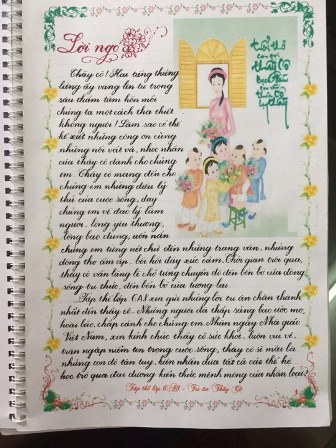 Lời ngỏ
Thầy cô! Hai tiếng thiêng
liêng ấy vang lên từ trong
sâu thẳm tâm hồn mỗi
chúng ta một cách tha thiết
không nguôi! Làm sao có thể
kể xiết những công ơn cùng
những nỗi vất vả, nhọc nhằn
của thầy cô dành cho chúng
em. Thầy cô mang đến cho
chúng em những điều lý
thú của cuộc sống, dạy
chúng em về đạo lý làm
người, lòng yêu thương,
lòng bao dung, uốn nắn
chúng em từng nét chữ đến những trang văn, những
dòng thơ ấm áp, bồi hồi đầy xúc cảm. Thời gian trôi qua,
thầy cô vẫn lặng lẽ chở từng chuyến đò đến bến bờ của dòng
sông tri thức, đến bến bờ của tương lai.
Tập thể lớp 6A8 xin gửi những lời tri ân chân thành
nhất đến thầy cô. Những người đã thắp sáng bao ước mơ,
hoài bão, chắp cánh cho chúng em. Nhân ngày Nhà giáo
Việt Nam, xin kính chúc thầy cô sức khỏe, luôn vui vẻ,
tràn ngập niềm tin trong cuộc sống, thầy cô sẽ mãi là
những con đò tận tụy, luôn nhấn đưa tất cả các thế hệ
học trò qua đại dương kiến thức mênh mông của nhân loại!
Tập thể lớp 6A8 - Tri ân Thầy Cô
tuổi thơ
con
thầy Cô